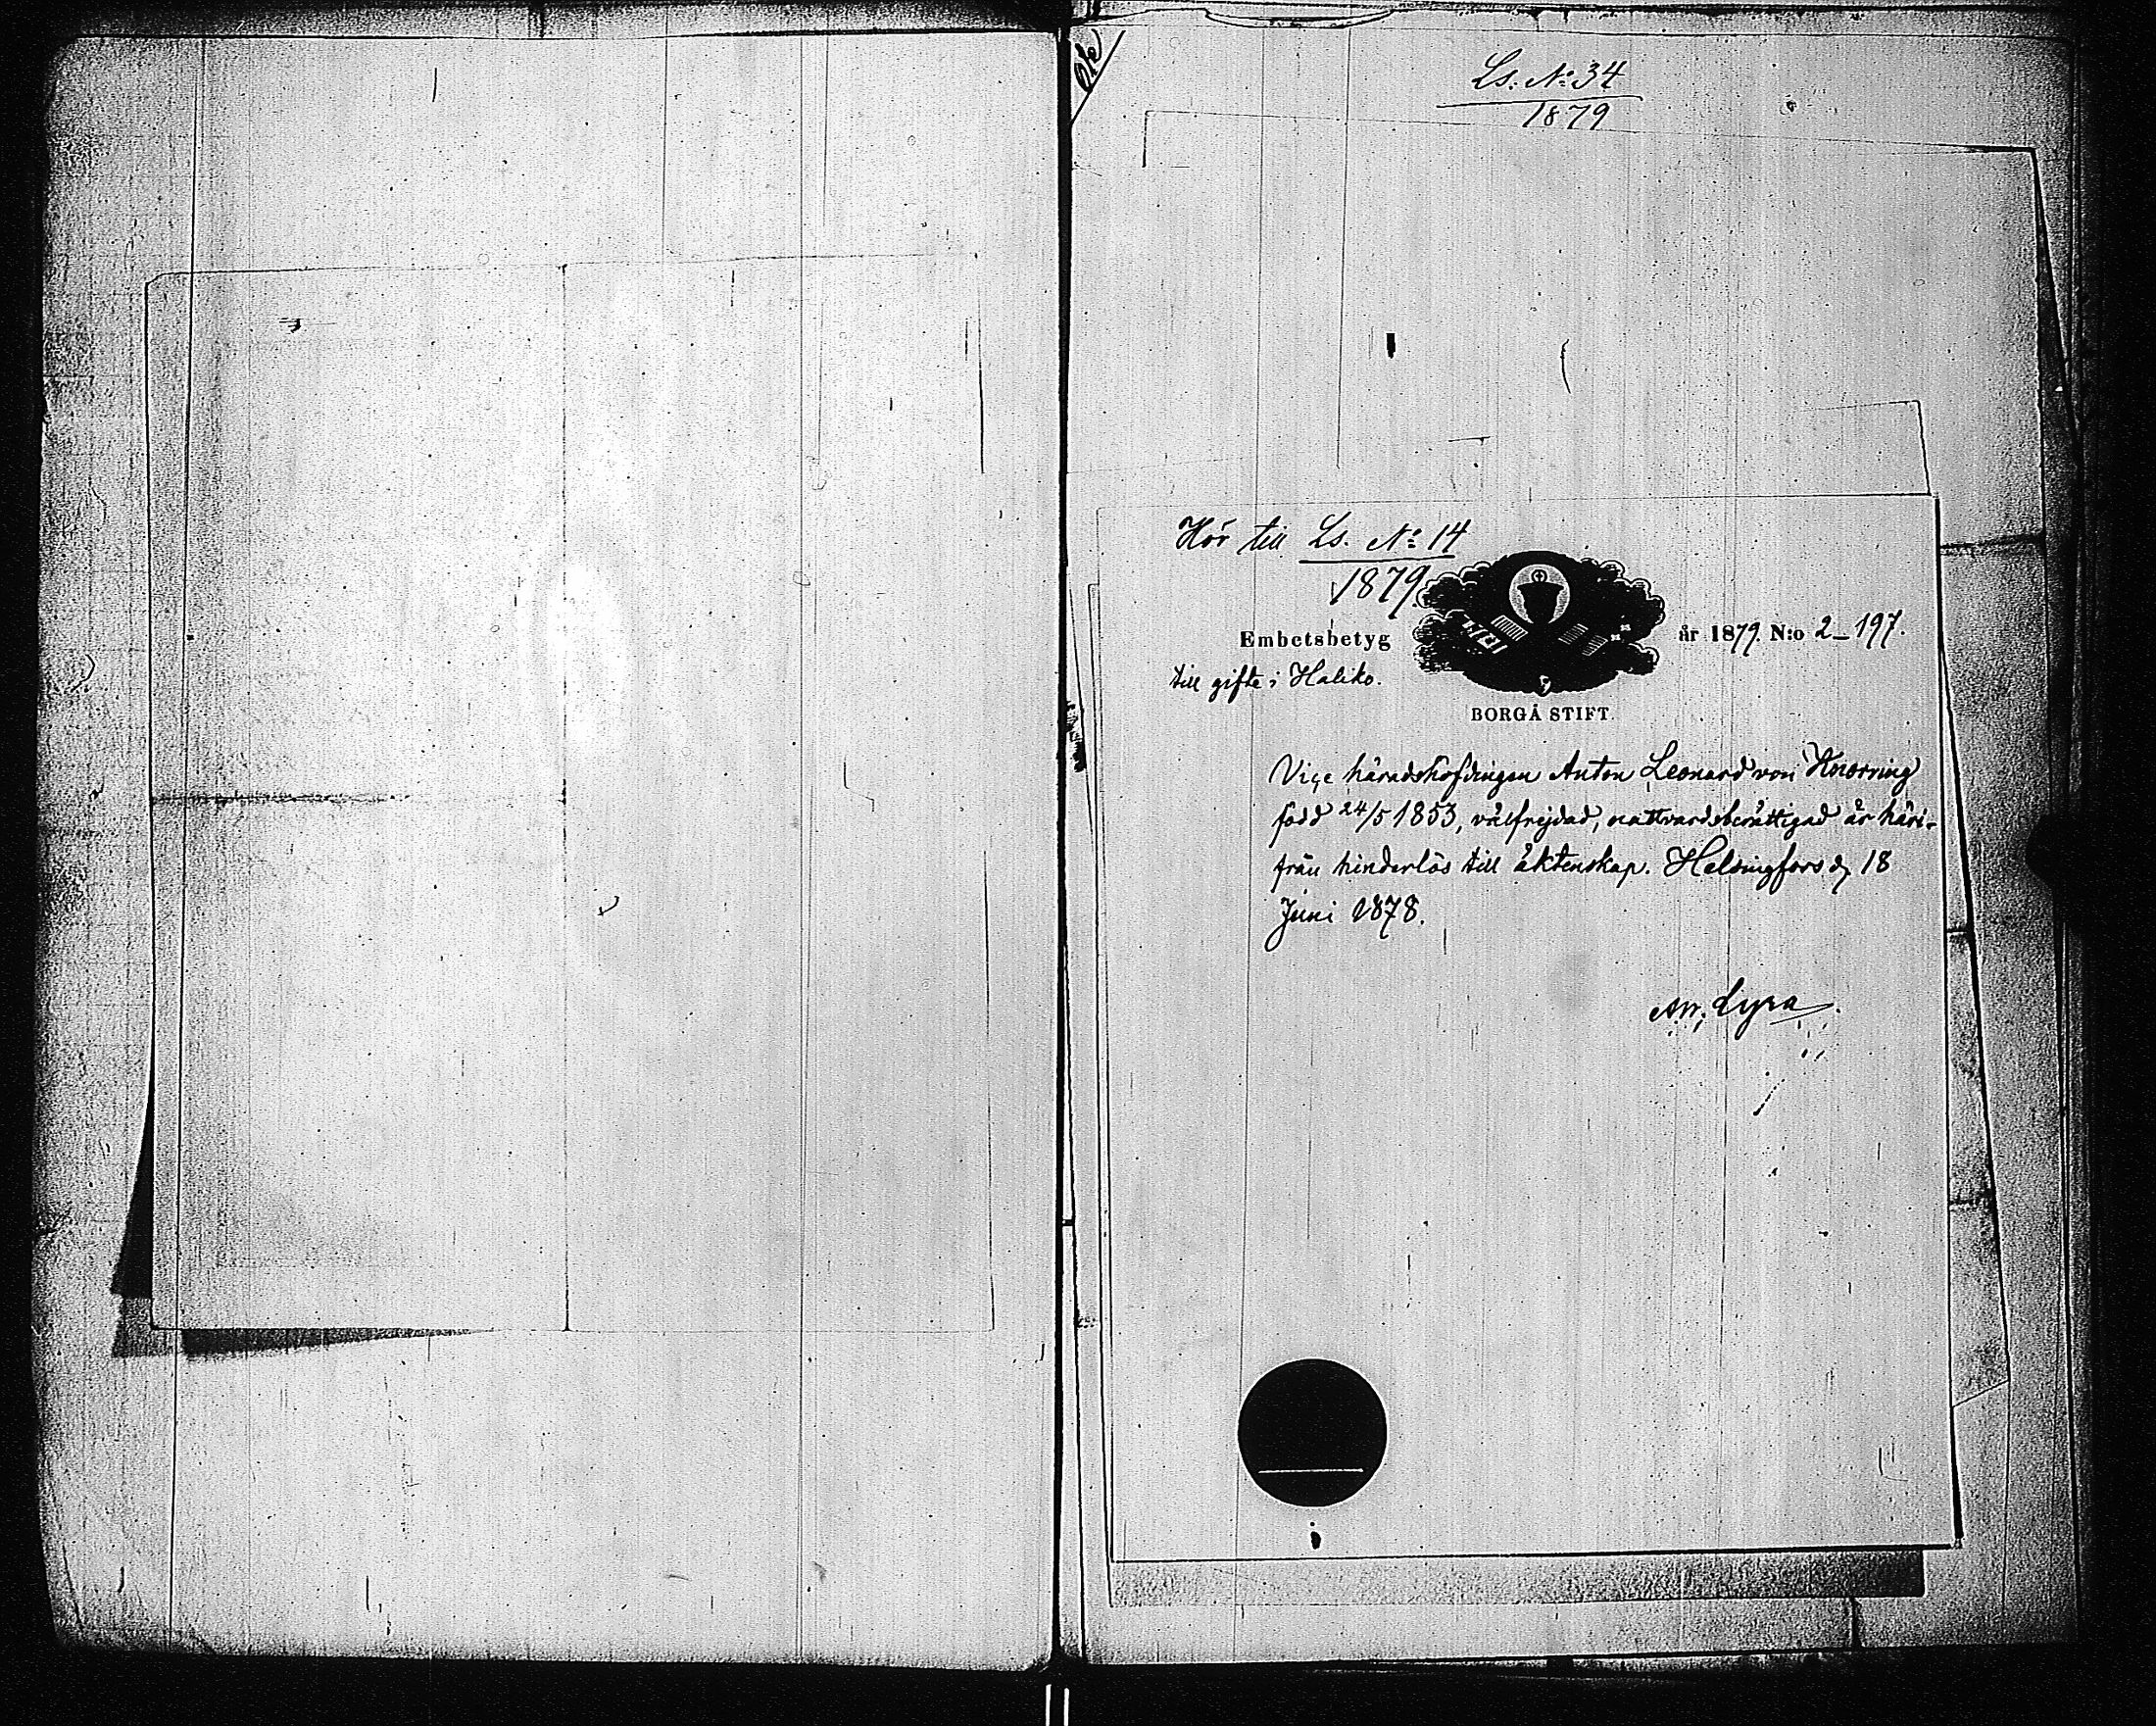 Ls. No: 34
1879
Hör till Ls. No: 14
1879.
Embetsbetyg
år 1879. N:o 2_197.
till gifte i Haliko.
BORGÅ STIFT.
Vice häradshöfdingen Anton Leonard von Knorring
född 24/5 1853, välfrejdad, nattvardsberättigad är häri-
från hinderlös till äktenskap. Helsingfors d. 18
Juni 1878.
Lyra.